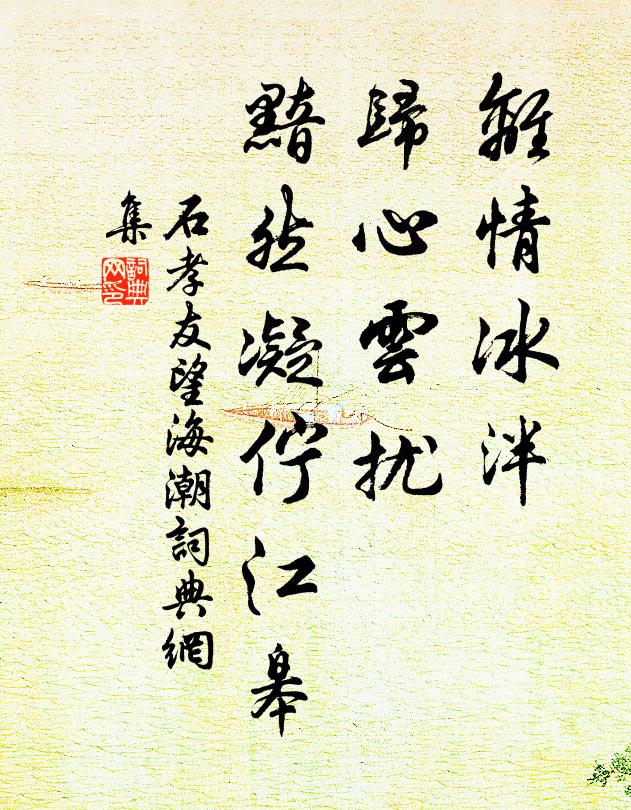 離情冰泮
歸心雲扰
黯然凝佇江皋
石孝友望海潮詞典網
集
詞典
网印